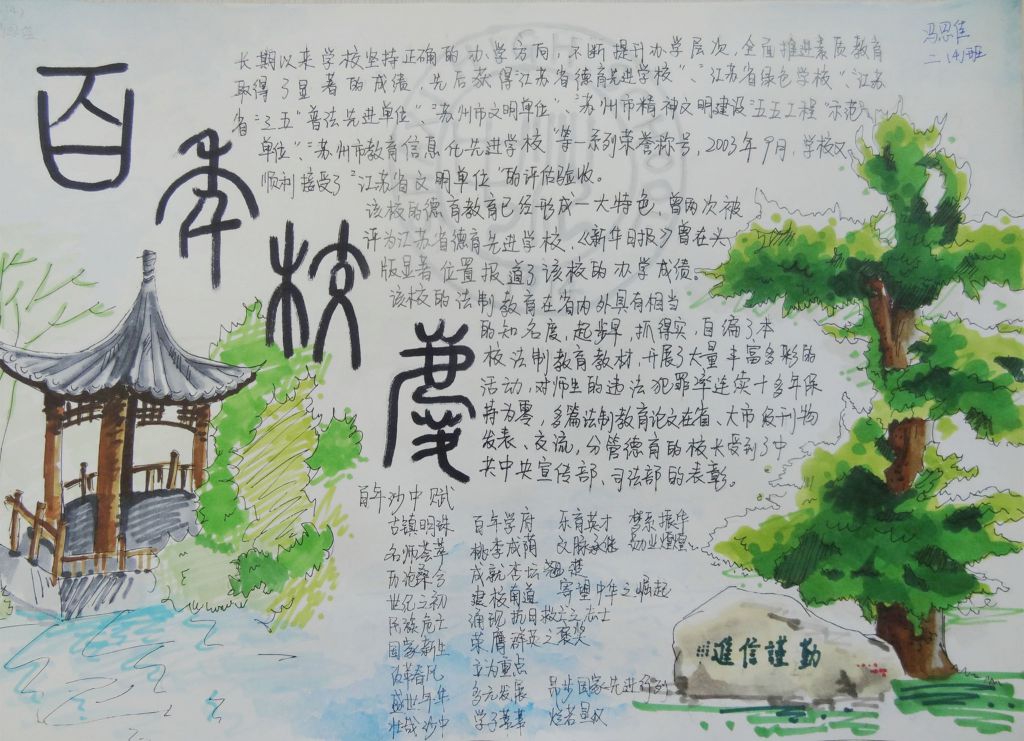 百年校慶
冯思佳
二(4)班
长期以来学校坚持正确的办学方向，不断提升办学层次，全面推进素质教育
取得了显著的成绩，先后获得江苏省德育先进学校"、"江苏省绿色学校"、"江苏
省"三五"普法先进单位"、"苏州市文明单位"、"苏州市精神文明建设"五五工程"示范
单位"、"苏州市教育信息化先进学校"等一系列荣誉称号，2003年9月，学校又
顺利接受了"江苏省文明单位"的评估验收。
该校的德育教育已经形成一大特色，曾两次被
评为江苏省德育先进学校，《新华日报》曾在头
版显著位置报道了该校的办学成绩。
该校的法制教育在省内外具有相当
的知名度，起步早，抓得实，自编了本
校法制教育教材，开展了大量丰富多彩的
活动，对师生的违法犯罪率连续十多年保
持为零，多篇法制教育论文在省、大市及刊物
发表、交流，分管德育的校长受到了中
共中央宣传部、司法部的表彰。
百年沙中赋
古镇明珠 百年学府 乐育英才 梦系振华
名师荟萃 桃李成荫 文脉承继
历沧桑 成就杏坛
世纪之初 建校甪直 寄望中华之崛起
民族危亡 涌现抗日救亡之志士
国家新生 荣膺群英之褒奖
改革春风 立为重点
盛世年华 多元发展
壮哉沙中 学子莘莘
勤謹信進